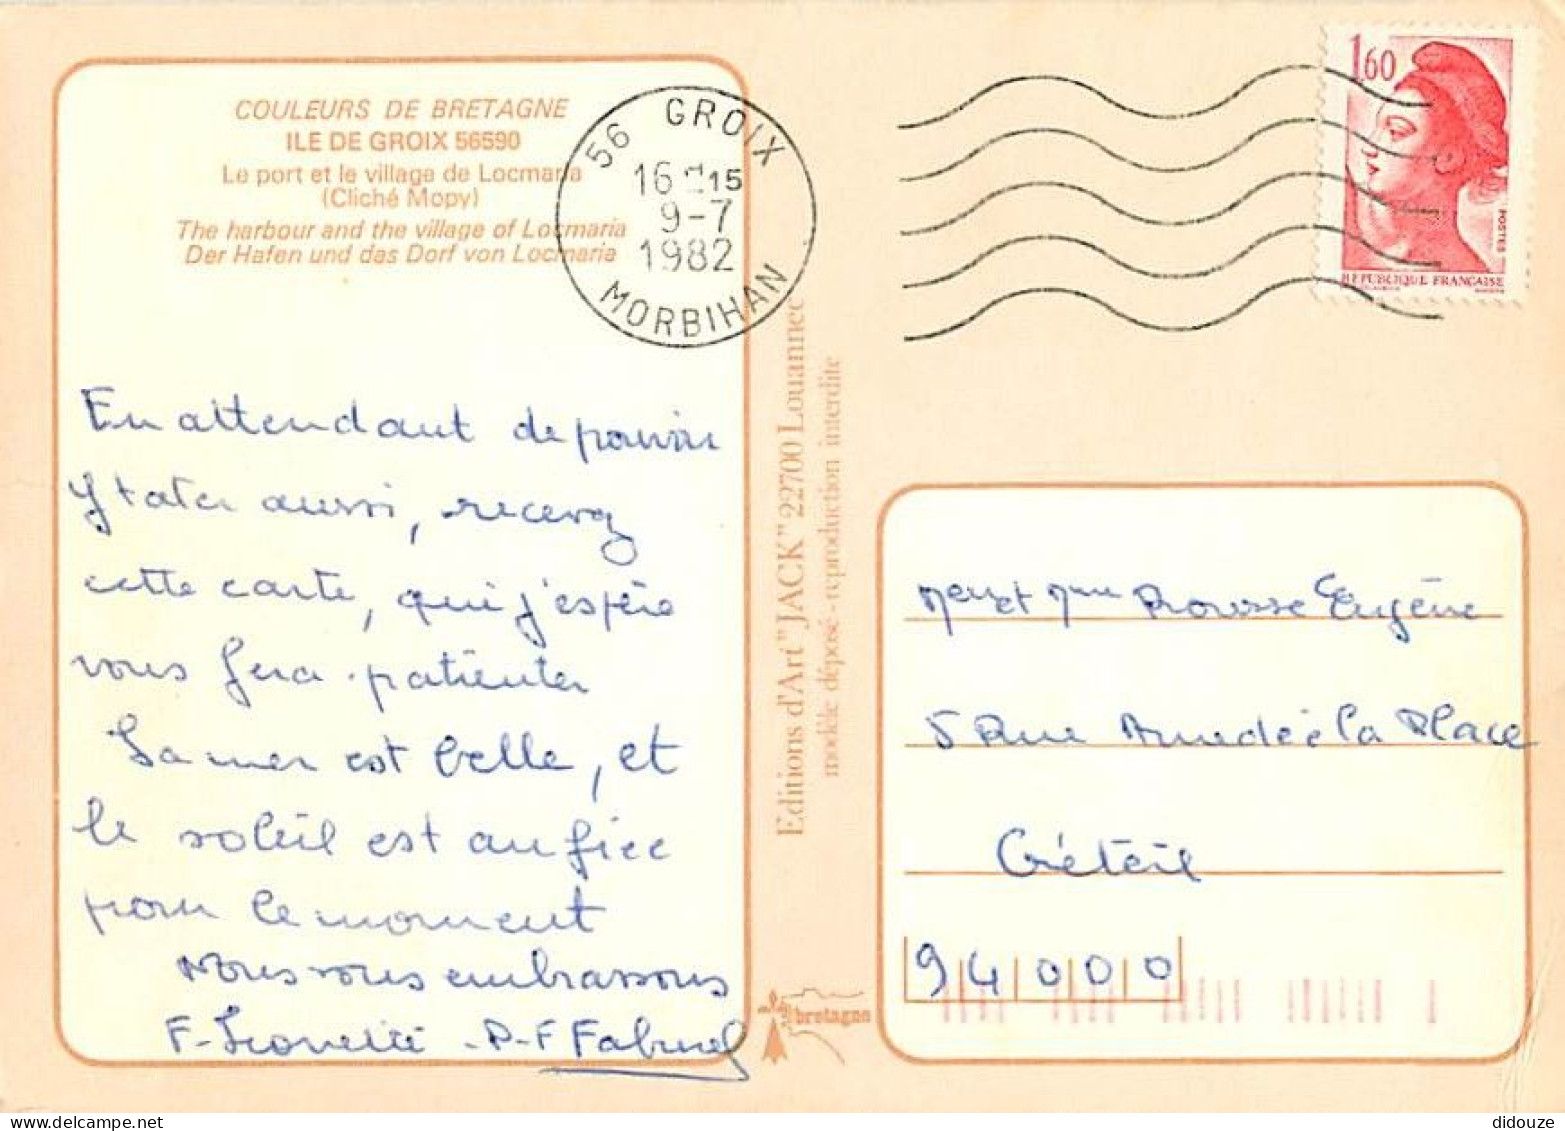 COULEURS DE BRETAGNE
ILE DE GROIX 56590
Le port et le village de Locmaria
(Cliché Mopy)
The harbour and the village of Locmaria
Der Hafen und das Dorf von Locmaria
56 GROIX
16 15
9-7
1982
MORBIHAN
1,60
POSTES
REPUBLIQUE FRANÇAISE
En attendant de pouvoir
y aussi, recevez
cette carte, qui j'espère
vous fera patienter
La mer est belle, et
le soleil est au fixe
pour le moment
Nous vous embrassons
F-Lionel - P-F
Editions d'Art "JACK" 22700 Louannec
modèle déposé - reproduction interdite
bretagne
et Mme Eugène
5 Rue Amedée la Place
Créteil
94000
didouze